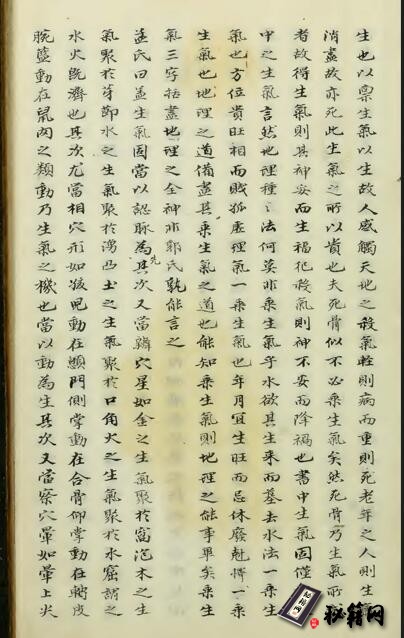 生也以稟生氣以生故人感觸天地之殺氣輕則病而重則死老年之人則生
消盡故亦死此生氣之所以貴也夫死骨似不必乘生氣矣然死骨乃生氣所
者故得生氣則其神安而生福犯殺氣則神不安而降禍也書中生氣固僅
中之生氣言然地理種〻法何莫非乘生氣乎水欲其生來而墓去水法一乘生
氣也方位貴旺相而賤孤虛理氣一乘生氣也年月宜生旺而忌休廢尅一乘
生氣也地理之道備盡其乘生氣之道也能知乘生氣則地理之能事畢矣乘生
氣三字括盡地理之全神非郭氏孰能言之
孟氏曰蓋生氣固當以認脉為先其次又當辨穴星如金之生氣聚於窩泡木之生
氣聚於芽節水之生氣聚於湧凸土之生氣聚於口角火之生氣聚於水窟謂之
水火既濟也其次尤當相穴形如孩兒動在顖門側掌動在合骨仰掌動在皮
腕籃動在鼠肉之類動乃生氣之機也當以動為生其次又當察穴暈如暈上尖
秘籍网